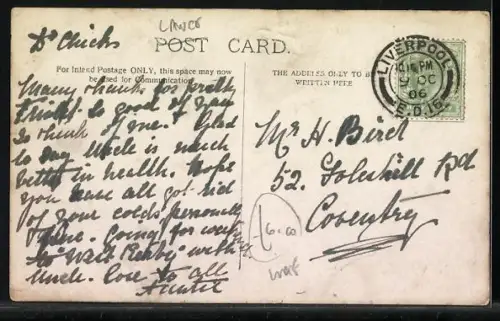 LANCS
POST CARD.
For Inland Postage ONLY, this space may now
be used for Communication.
THE ADDRESS ONLY TO BE
WRITTEN HERE
LIVERPOOL
PM
OC
06
E.D.
Dr Chicks
Many thanks for pretty
so good of you
to think of me. Glad
to say Uncle is much
better in health. Hope
you have all got rid
of your colds
Going for week
to West Kirby with
Uncle. love to all
Auntie
Mr H. Bird
52. Foleshill Rd
Coventry
6.00